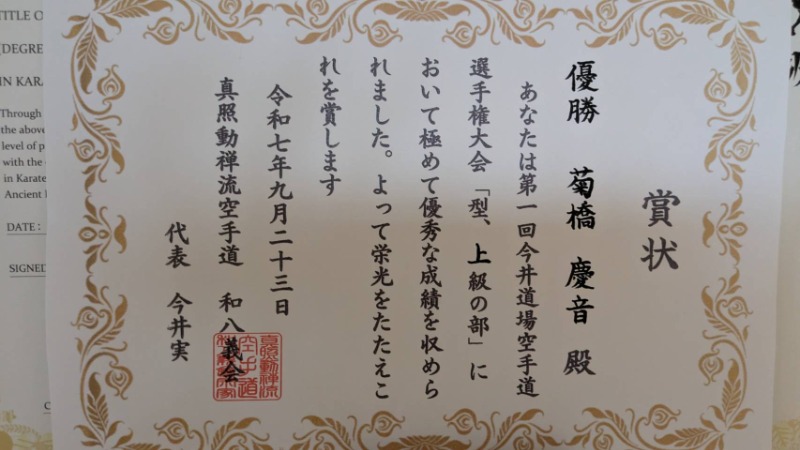 賞状
優勝 菊橋 慶音 殿
あなたは第一回今井道場空手道
選手権大会「型、上級の部」に
おいて極めて優秀な成績を収めら
れました。よって栄光をたたえこ
れを賞します
令和七年九月二十三日
真照動禅流空手道 和八義会
代表 今井実
TITLE O
(DEGRE
IN KARA
Through
the above
level of p
with the
in Karate
Ancient
DATE:
SIGNED